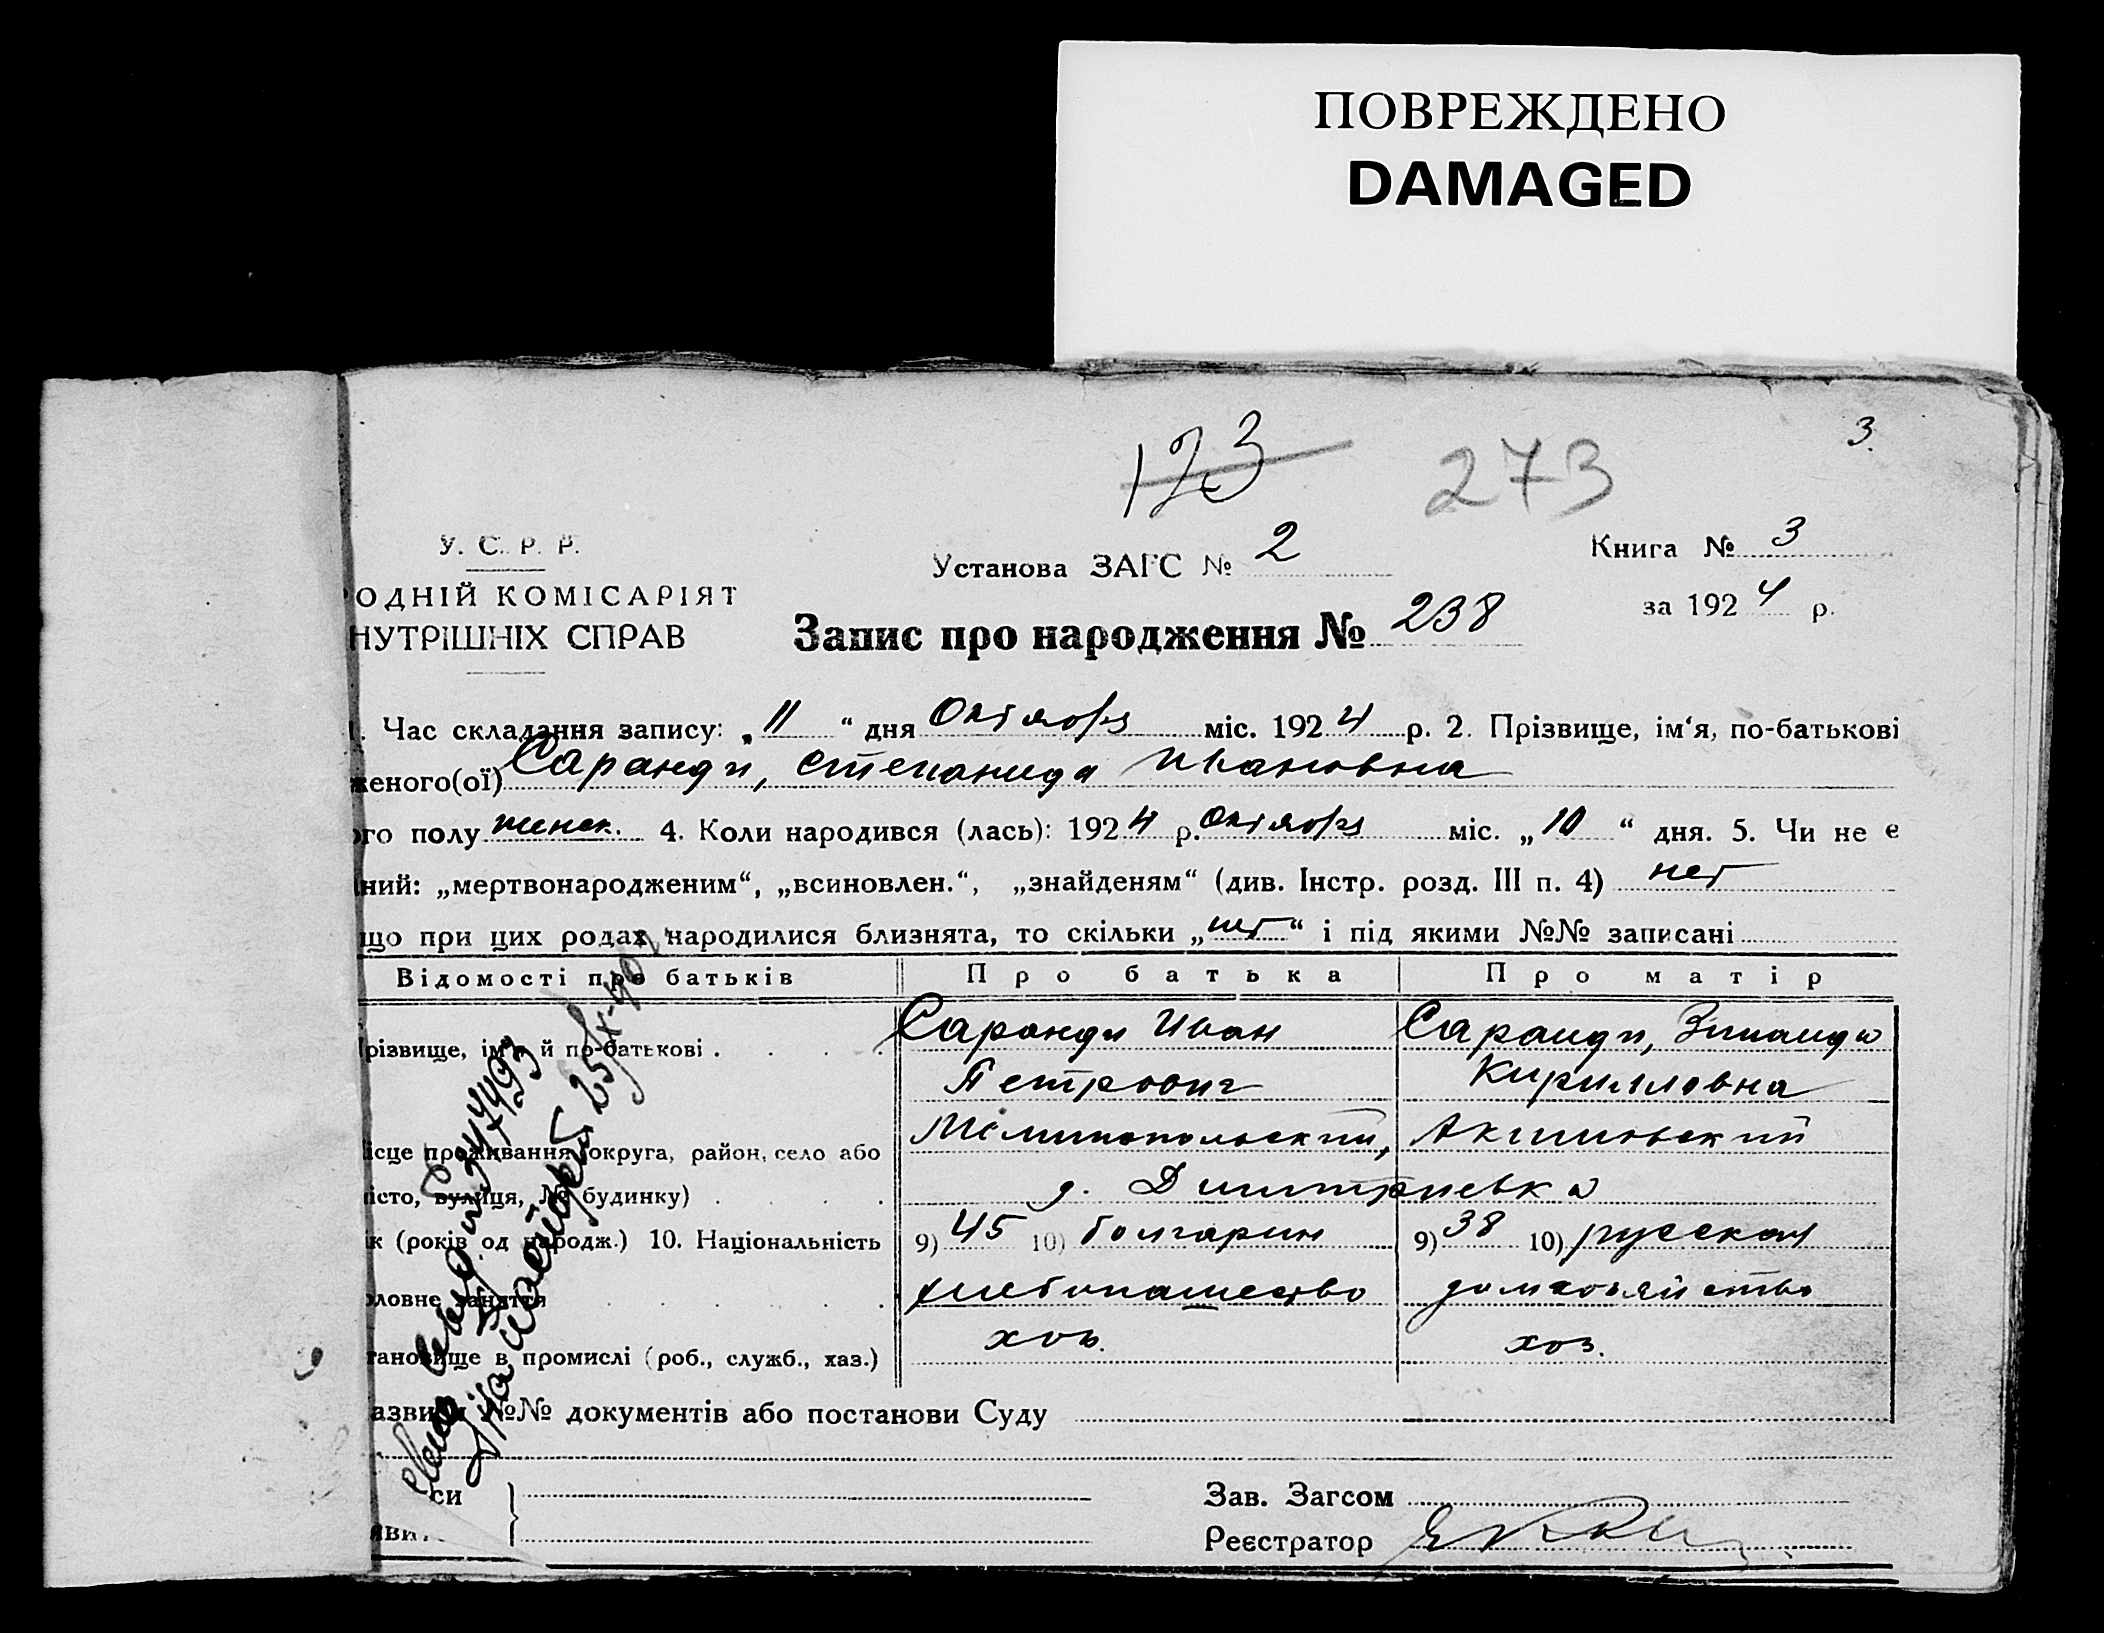 ПОВРЕЖДЕНО
DAMAGED
3.
123
273
У. С. Р. Р.
Установа ЗАГС № 2
Книга № 3
ОДНІЙ КОМІСАРІЯТ
за 1924 р.
НУТРІШНІХ СПРАВ
Запис про народження № 238
1. Час складання запису: „11“ дня Октября міс. 1924 р. 2. Прізвище, ім‘я, по-батькові
женого(ої) Саранди, Степанида Ивановна
ого полу женск. 4. Коли народився (лась): 1924 р. Октября міс. „10“ дня. 5. Чи не є
ний: „мертвонародженим“, „всиновлен.“, „знайденям“ (див. Інстр. розд. III п. 4) нет
що при цих родах народилися близнята, то скільки „нет“ і під якими №№ записані
Відомості про батьків Про батька Про матір
різвище, ім‘я й по-батькові . . . . Саранди Иван Саранди, Зинаида
Петрович Кирилловна
Мелитопольский, Акимовский
ісце проживання (округа, район, село або
місто, вулиця, № будинку) . . . . д. Дмитриевка
к (років од народж.) 10. Національність 9) 45 10) болгарин 9) 38 10) русская
оловне заняття . . . . . . хлебопашество домхозяйство
тановище в промислі (роб., служб., хаз.) хоз. хоз.
азви й №№ документів або постанови Суду
си
яви
Зав. Загсом
Реєстратор